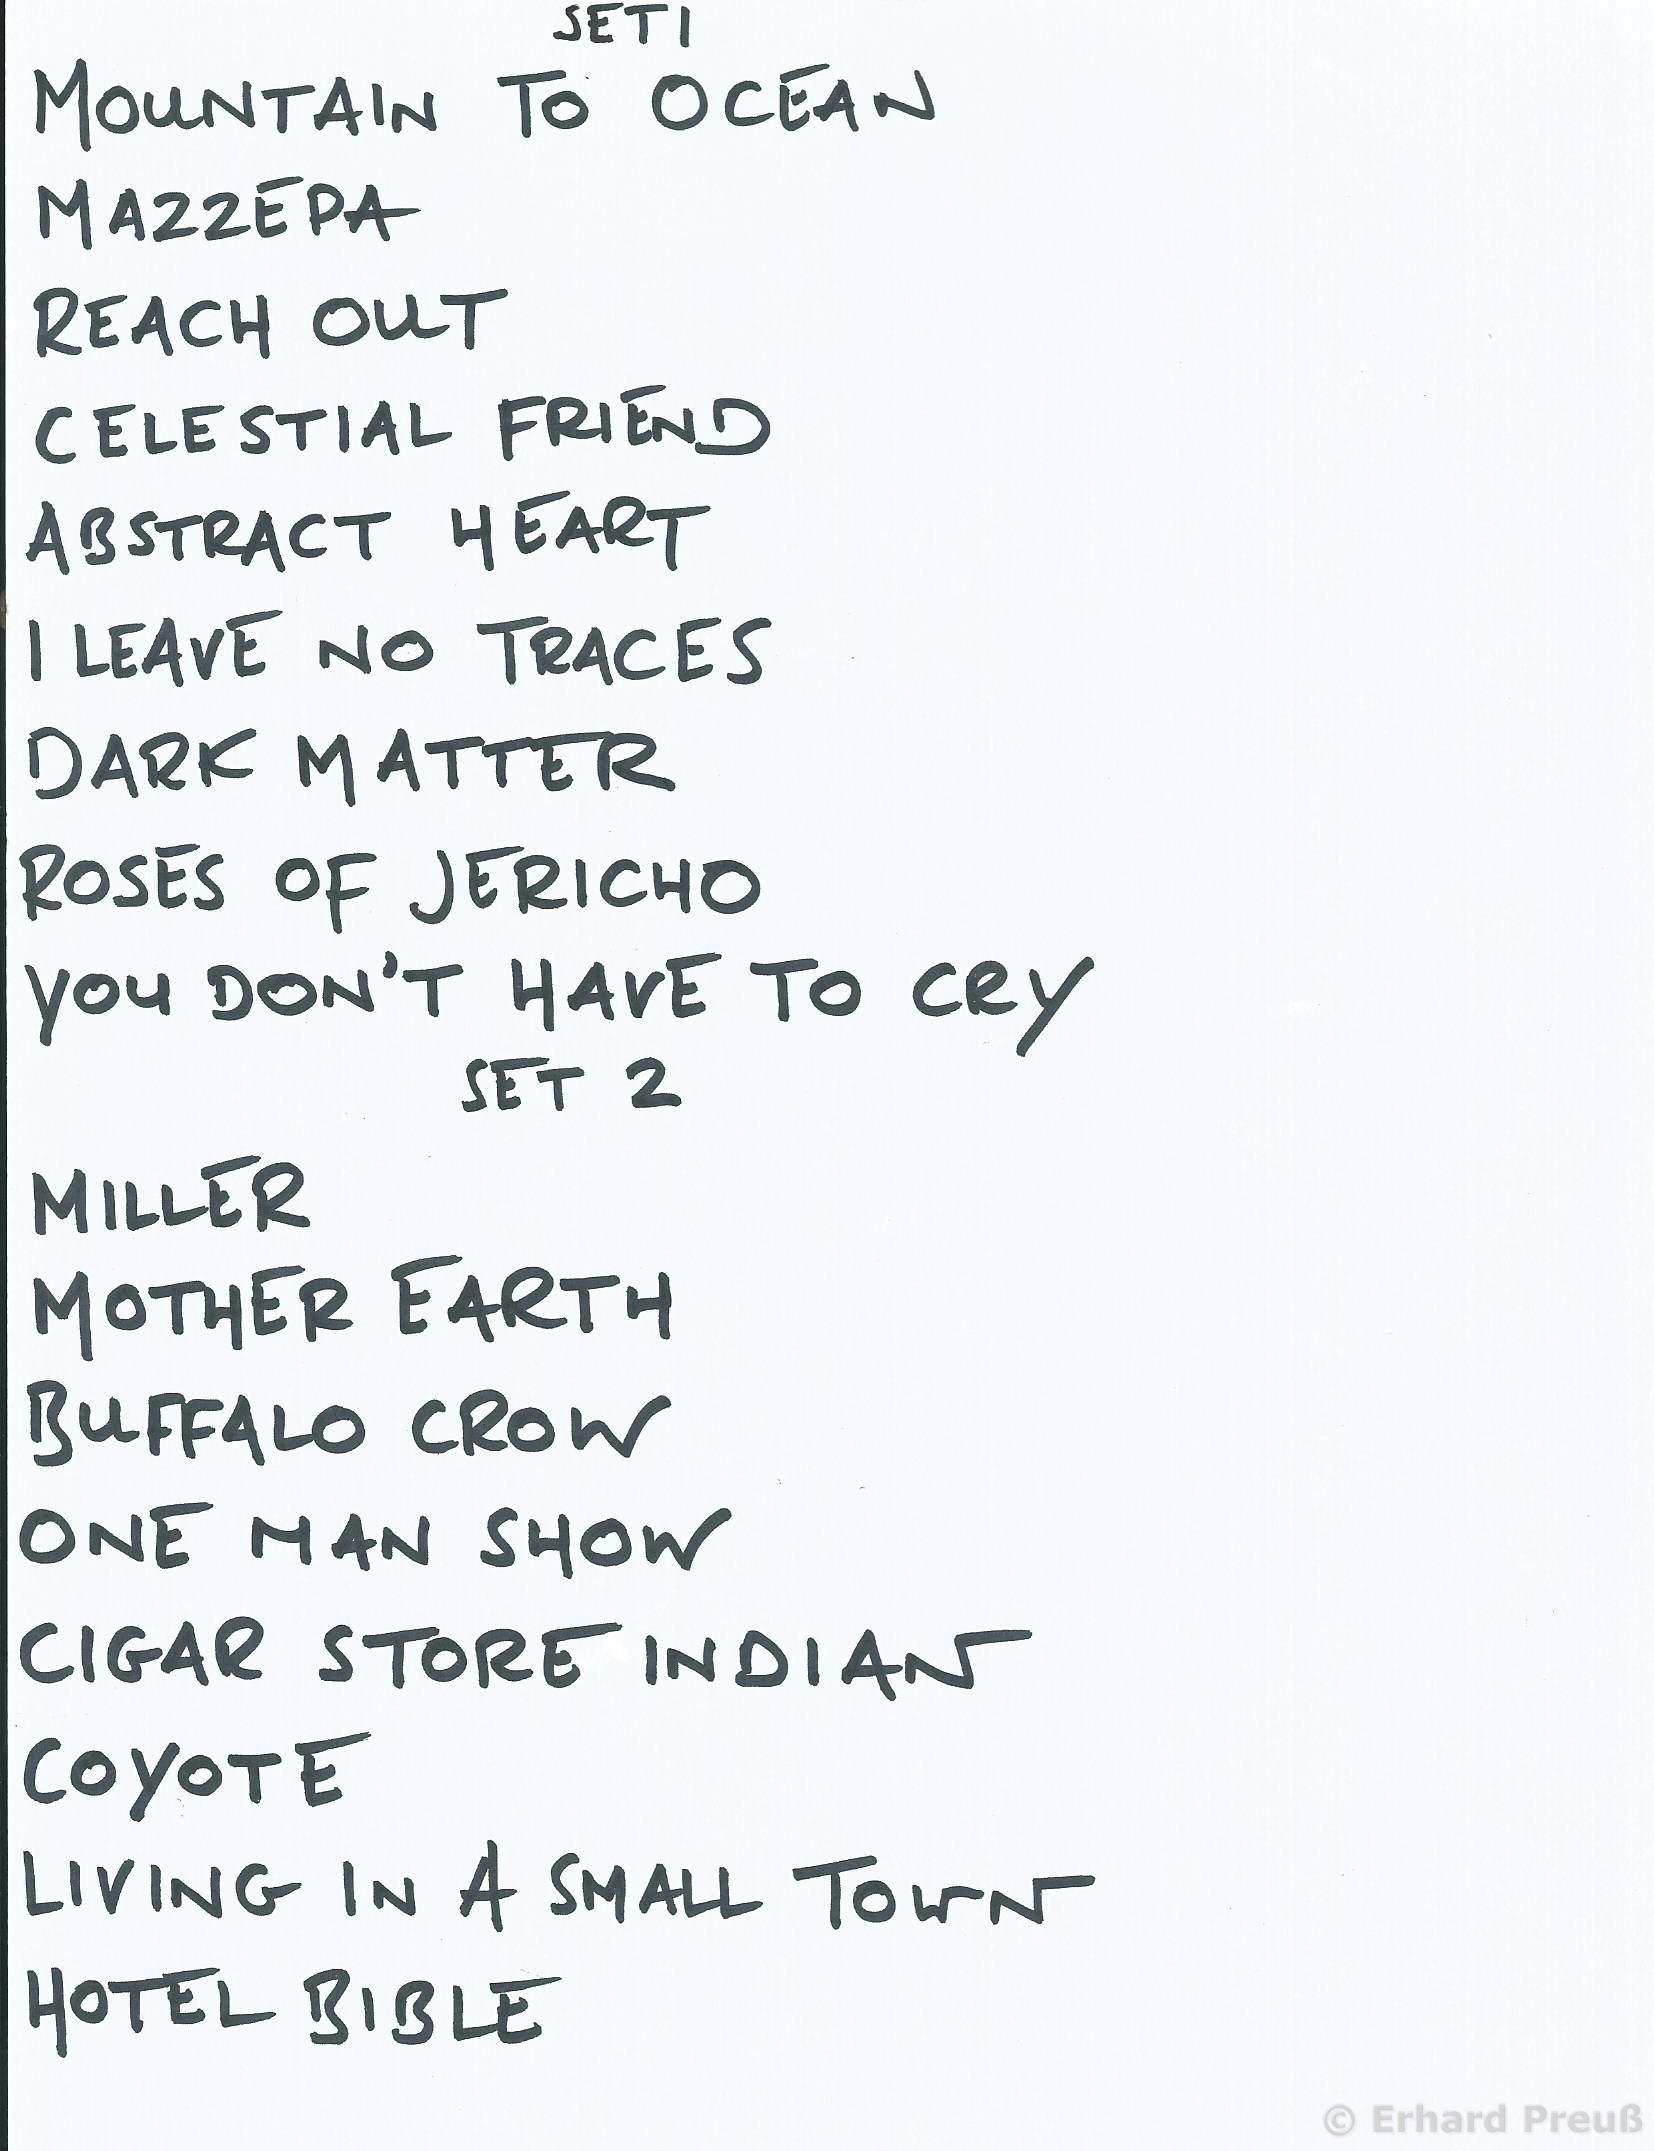 SET 1
MOUNTAIN TO OCEAN
MAZZEPA
REACH OUT
CELESTIAL FRIEND
ABSTRACT HEART
I LEAVE NO TRACES
DARK MATTER
ROSES OF JERICHO
YOU DON'T HAVE TO CRY
SET 2
MILLER
MOTHER EARTH
BUFFALO CROW
ONE MAN SHOW
CIGAR STORE INDIAN
COYOTE
LIVING IN A SMALL TOWN
HOTEL BIBLE
© Erhard Preuß